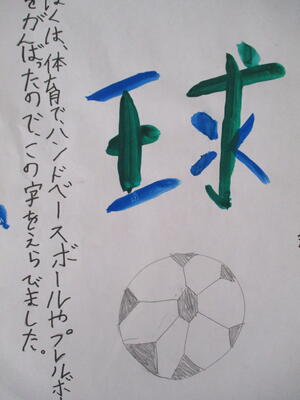 球
ぼくは、体育で、ハンドベースボールやプレルボー
をがんばったので、この字をえらびました。